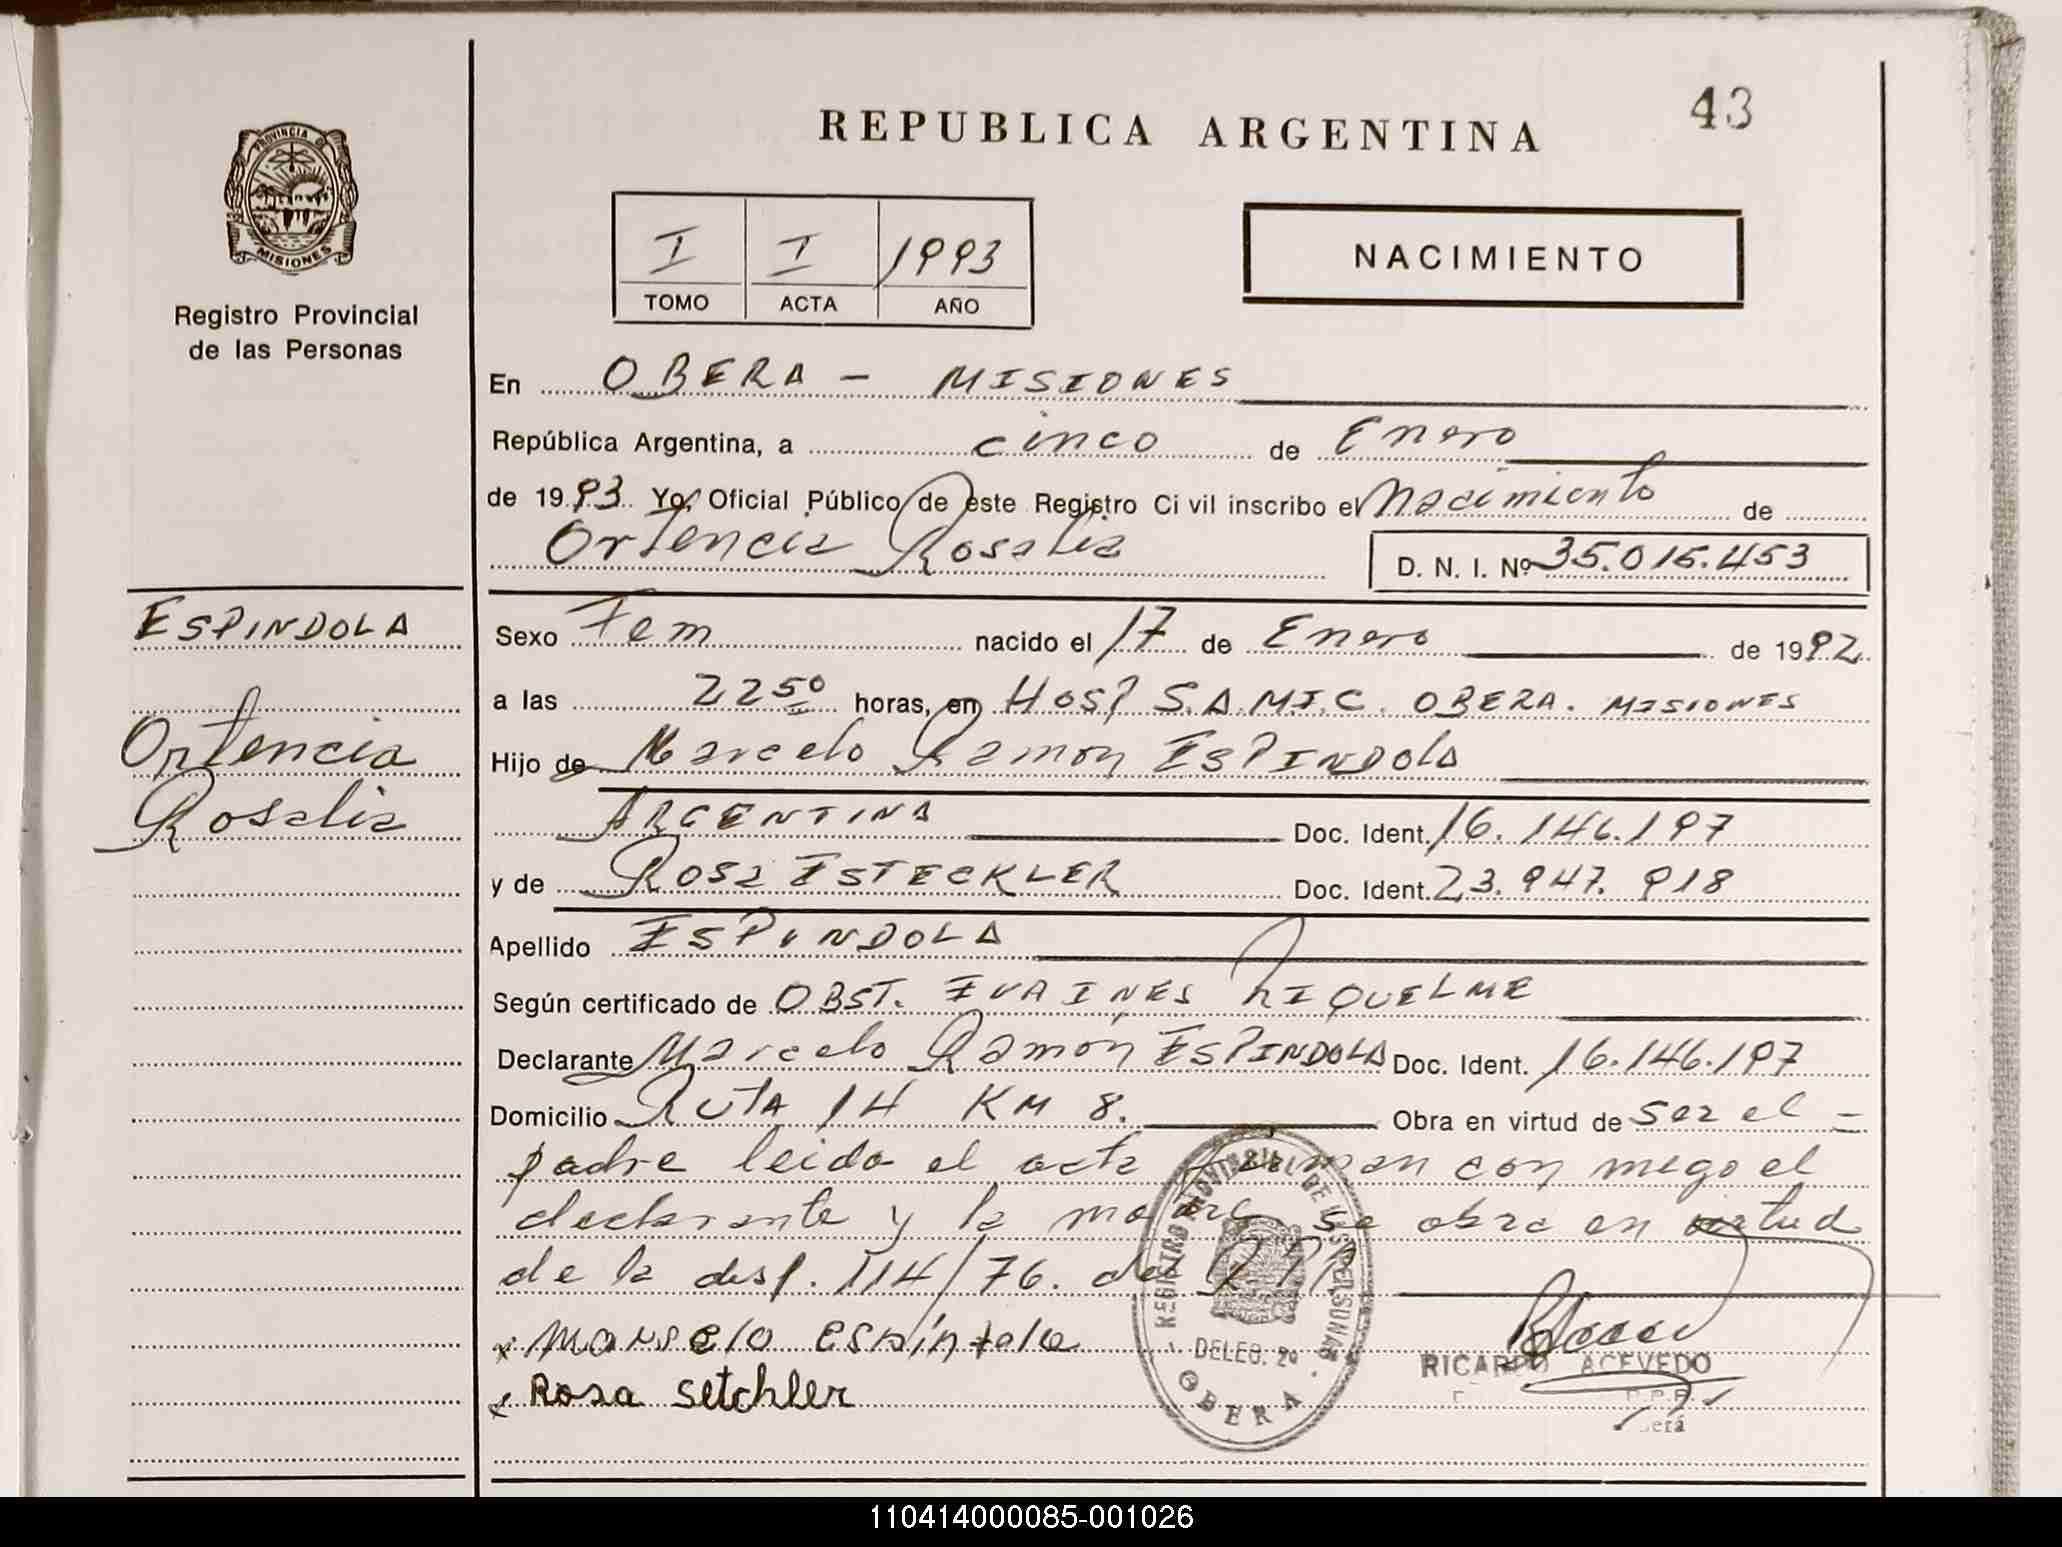 43
REPUBLICA ARGENTINA
PROVINCIA DE
MISIONES
Registro Provincial
de las Personas
I I 1993
TOMO ACTA AÑO
NACIMIENTO
En OBERA - MISIONES
República Argentina, a cinco de Enero
de 1993 Yo, Oficial Público de este Registro Ci vil inscribo el Nacimiento de
Ortencia Rosalia D. N. I. Nº 35.016.453
ESPINDOLA
Ortencia
Rosalia
Sexo Fem nacido el 17 de Enero de 1992
a las 22 50 horas, en HOSP S.A.M.I.C. OBERA. MISIONES
Hijo de Marcelo Ramón ESPINDOLA
ARGENTINA Doc. Ident. 16.146.197
y de ROSA ESTECKLER Doc. Ident. 23.947.918
Apellido ESPINDOLA
Según certificado de OBST. EVA INES RIQUELME
Declarante Marcelo Ramón ESPINDOLA Doc. Ident. 16.146.197
Domicilio RUTA 14 KM 8. Obra en virtud de ser el =
padre leida el acta firman con migo el
declarante y la madre se obra en virtud
de la disp. 114/76. del
marselo espíndola
Rosa Setchler
REGISTRO PROVINCIAL DE LAS PERSONAS
DELEG. 2ª
OBERA
RICARDO ACEVEDO
110414000085-001026